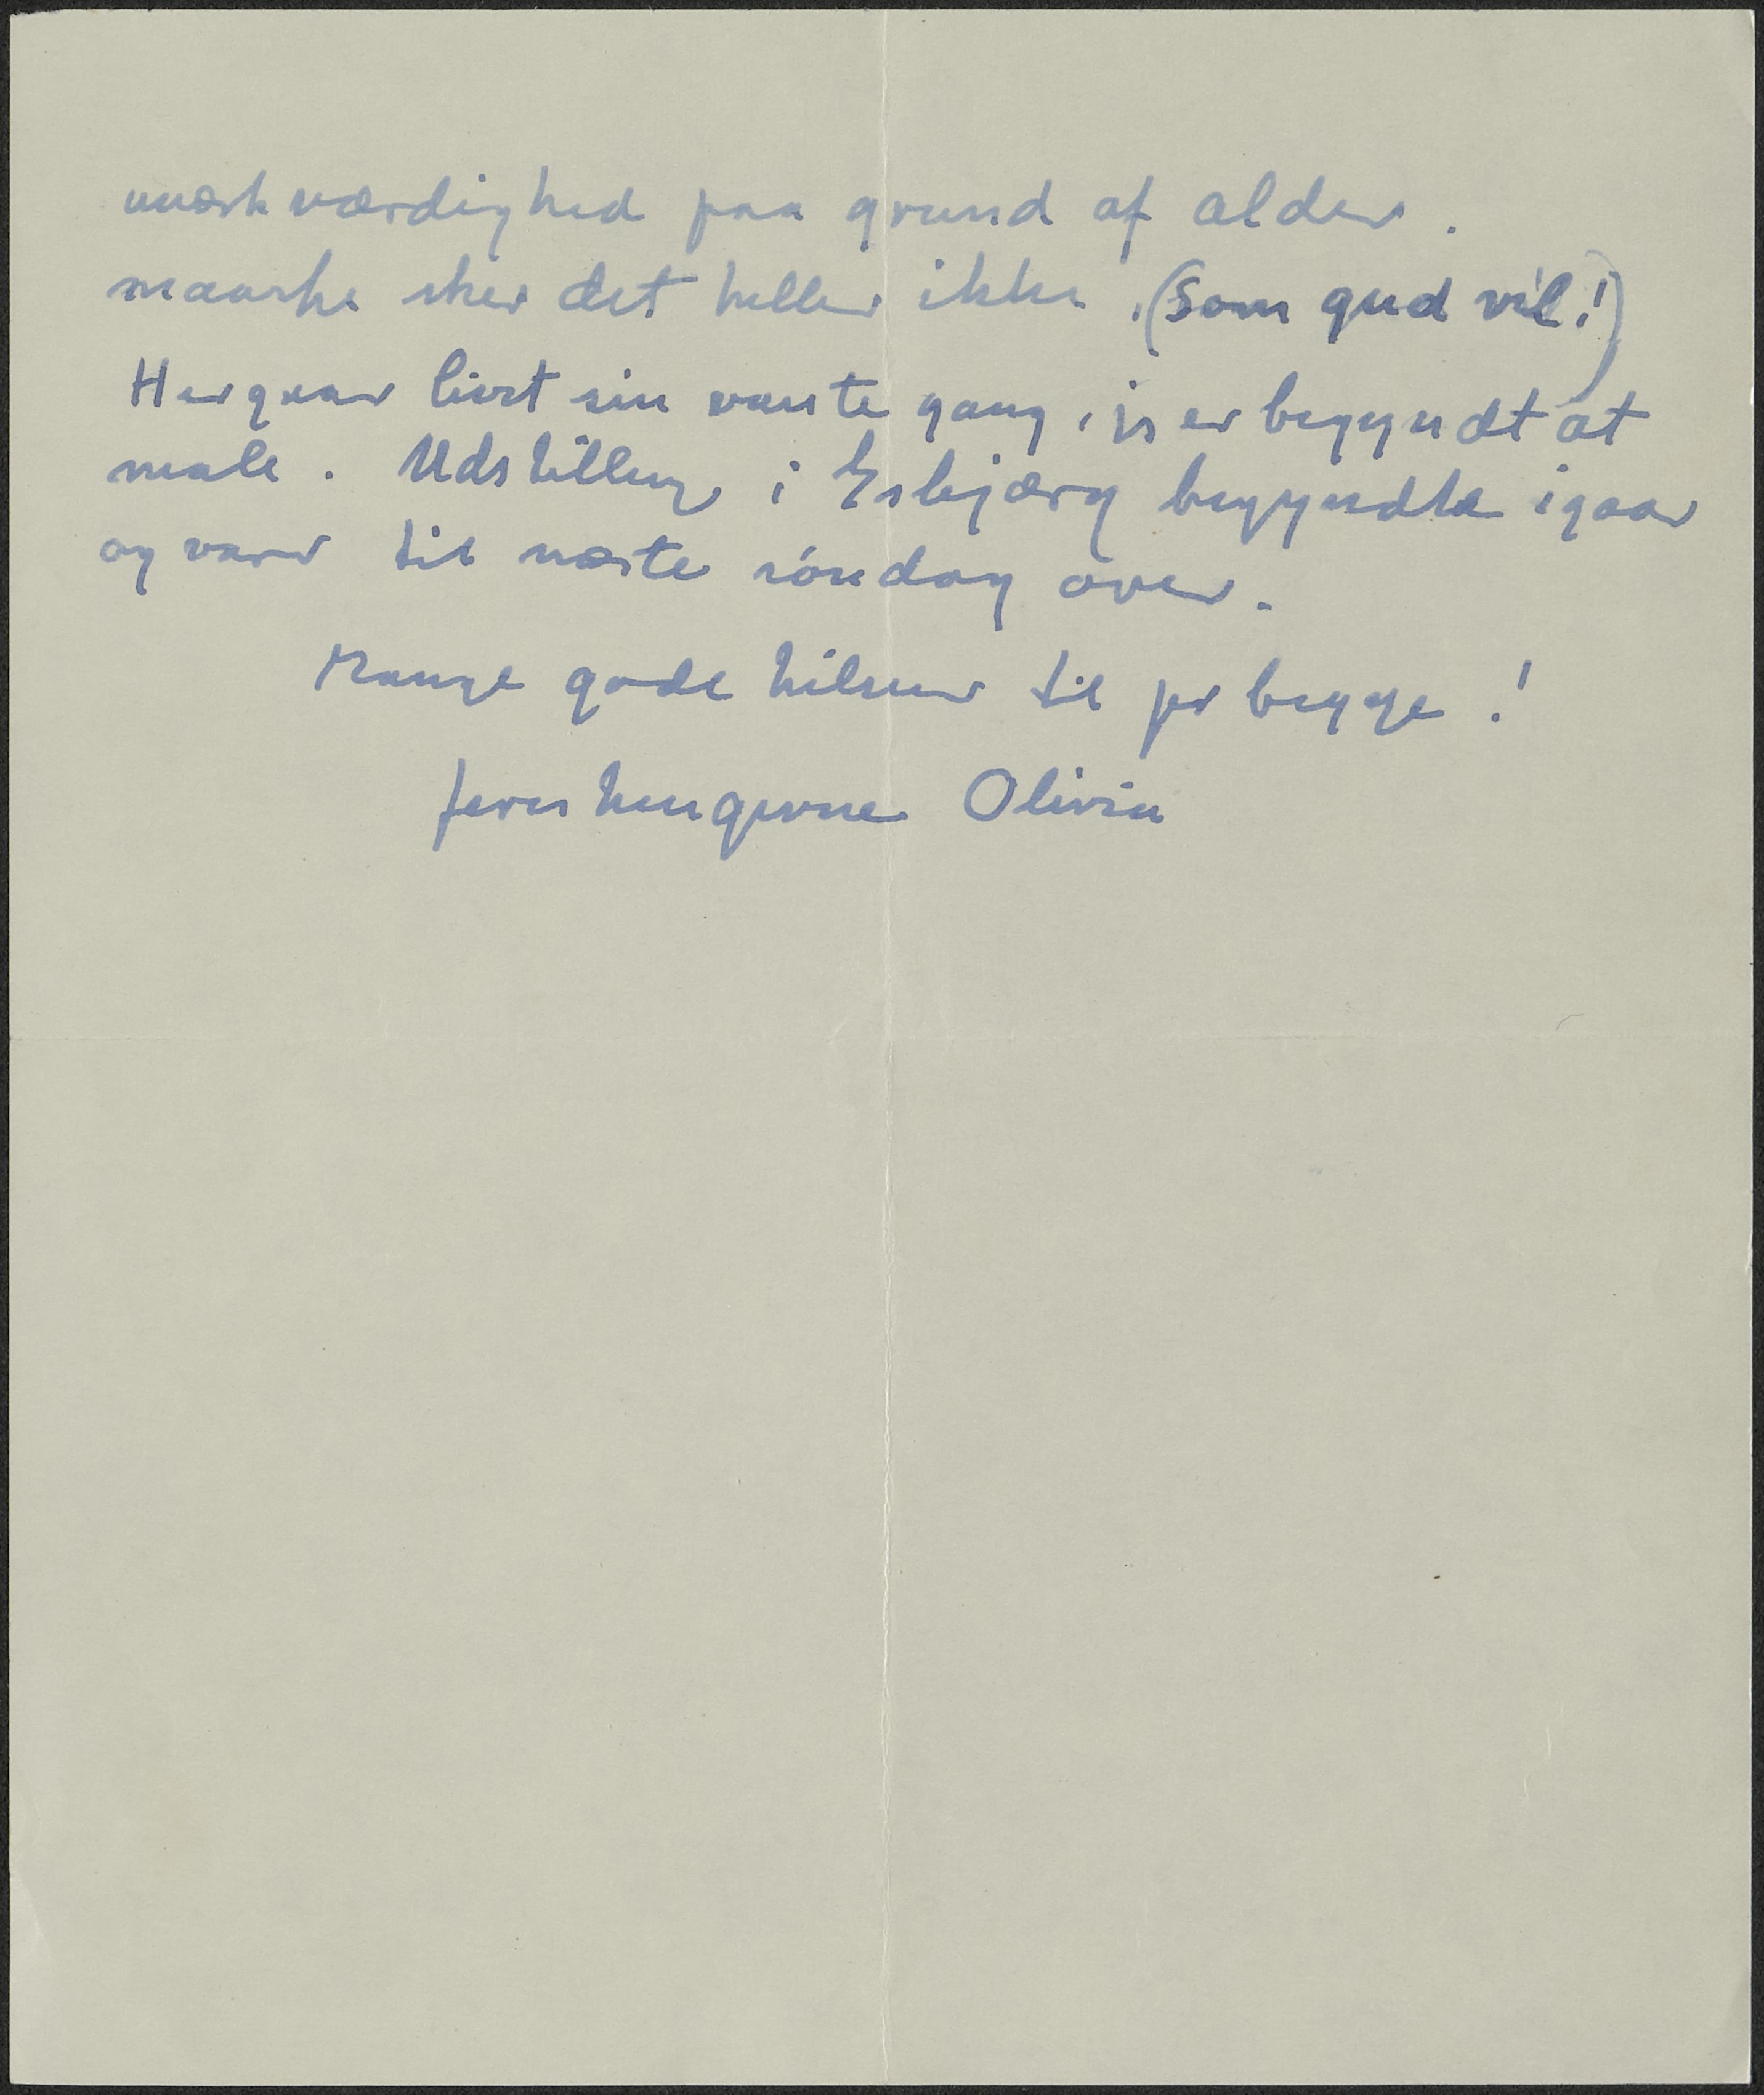 mærkværdighed paa grund af alder.
maaske sker det heller ikke. (Som gud vil!)
Her gaar livet sin vante gang, jeg er begyndt at
male. Udstilling i Esbjærg begyndte igaar
og varer til næste søndag over.
Mange gode hilsner til jer begge!
jeres hengivne Olivia